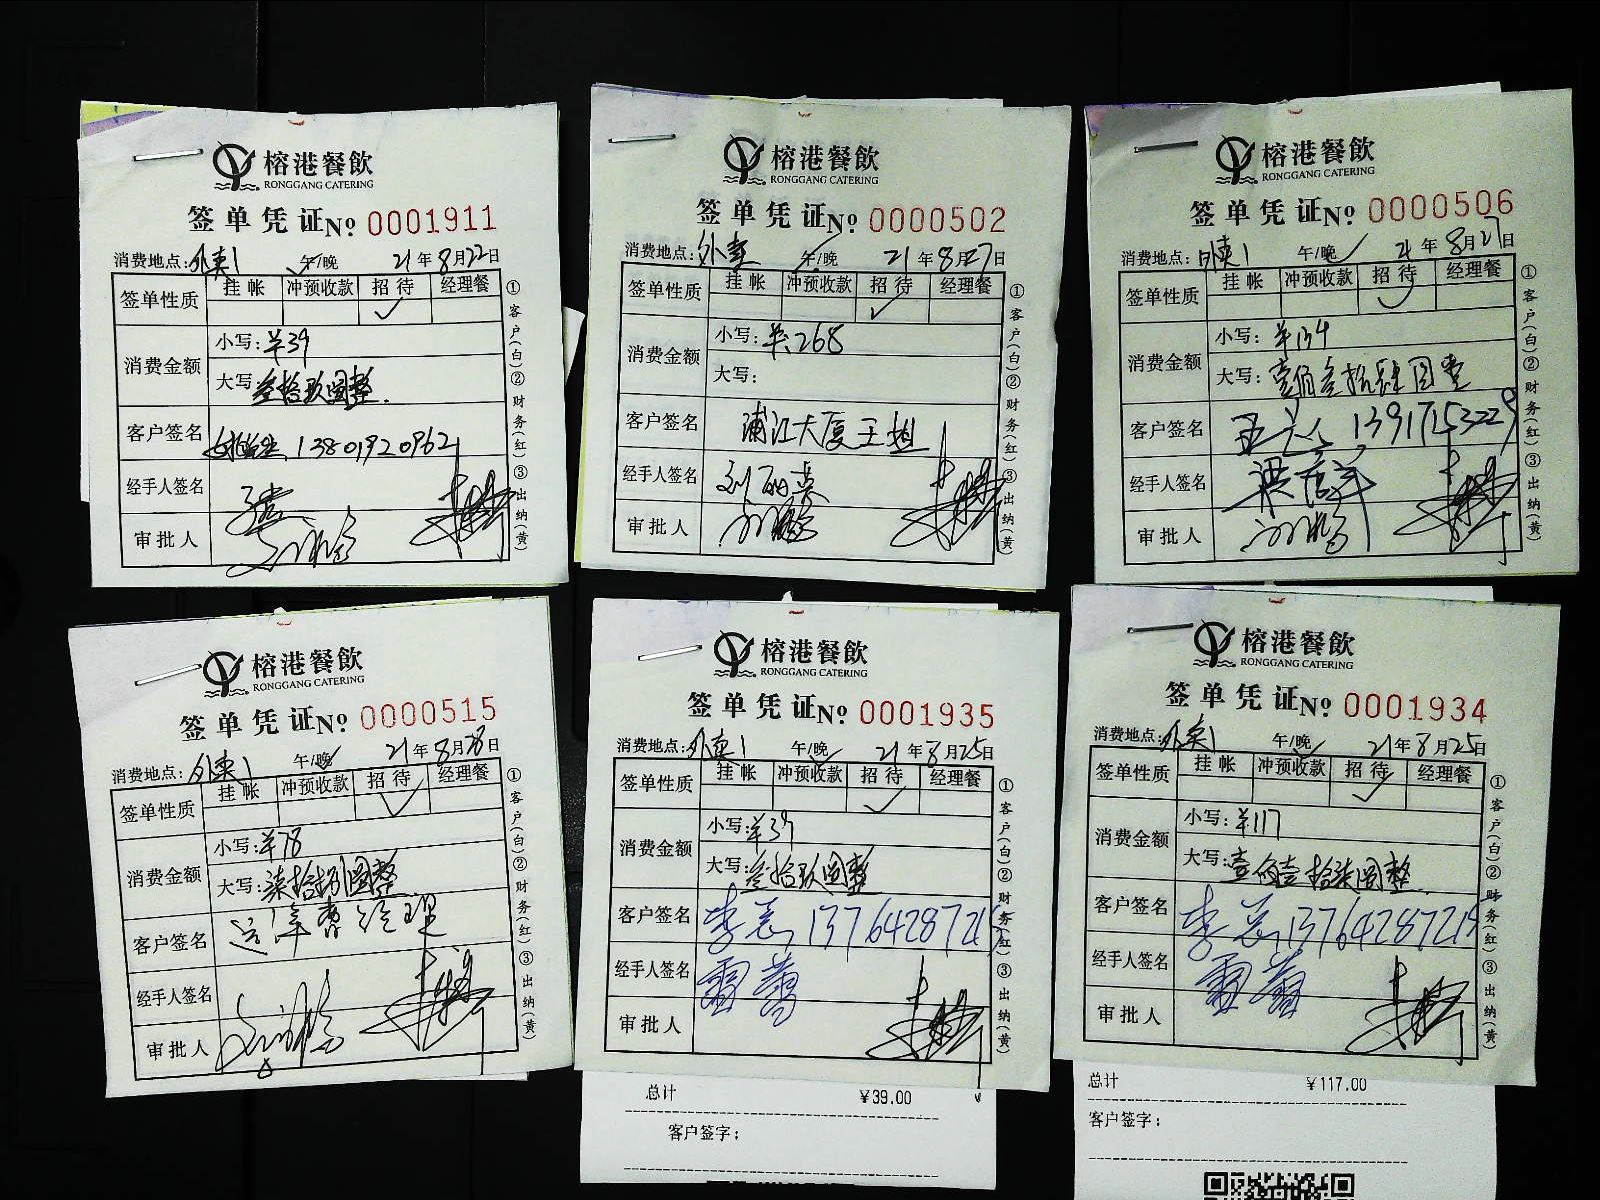 榕港餐飲
RONGGANG CATERING
签单凭证 No 0001911
消费地点:外卖1 午/晚 21年8月22日
签单性质 挂帐 冲预收款 招待 经理餐
消费金额
小写:¥39
大写:叁拾玖圆整.
客户签名 13801920962
经手人签名
审批人
①客户(白)②财务(红)③出纳(黄)
榕港餐飲
RONGGANG CATERING
签单凭证 No 0000502
消费地点:外卖 午/晚 21年8月27日
签单性质 挂帐 冲预收款 招待 经理餐
消费金额
小写:¥268
大写:
客户签名 浦江大厦王姐
经手人签名
审批人
①客户(白)②财务(红)③出纳(黄)
榕港餐飲
RONGGANG CATERING
签单凭证 No 0000506
消费地点:外卖1 午/晚 21年8月27日
签单性质 挂帐 冲预收款 招待 经理餐
消费金额
小写:¥134
大写:壹佰叁拾肆圆整
客户签名 13917153229
经手人签名
审批人
①客户(白)②财务(红)③出纳(黄)
榕港餐飲
RONGGANG CATERING
签单凭证 No 0000515
消费地点:外卖1 午/晚 21年8月28日
签单性质 挂帐 冲预收款 招待 经理餐
消费金额
小写:¥78
大写:柒拾捌圆整
客户签名 远洋曹经理
经手人签名
审批人
①客户(白)②财务(红)③出纳(黄)
榕港餐飲
RONGGANG CATERING
签单凭证 No 0001935
消费地点:外卖1 午/晚 21年8月25日
签单性质 挂帐 冲预收款 招待 经理餐
消费金额
小写:¥39
大写:叁拾玖圆整
客户签名 李总
经手人签名 雷蕾
审批人
①客户(白)②财务(红)③出纳(黄)
总计 ¥39.00
客户签字:
榕港餐飲
RONGGANG CATERING
签单凭证 No 0001934
消费地点:外卖1 午/晚 21年8月25日
签单性质 挂帐 冲预收款 招待 经理餐
消费金额
小写:¥117
大写:壹佰壹拾柒圆整
客户签名 李总 13764287219
经手人签名 雷蕾
审批人
①客户(白)②财务(红)③出纳(黄)
总计 ¥117.00
客户签字: